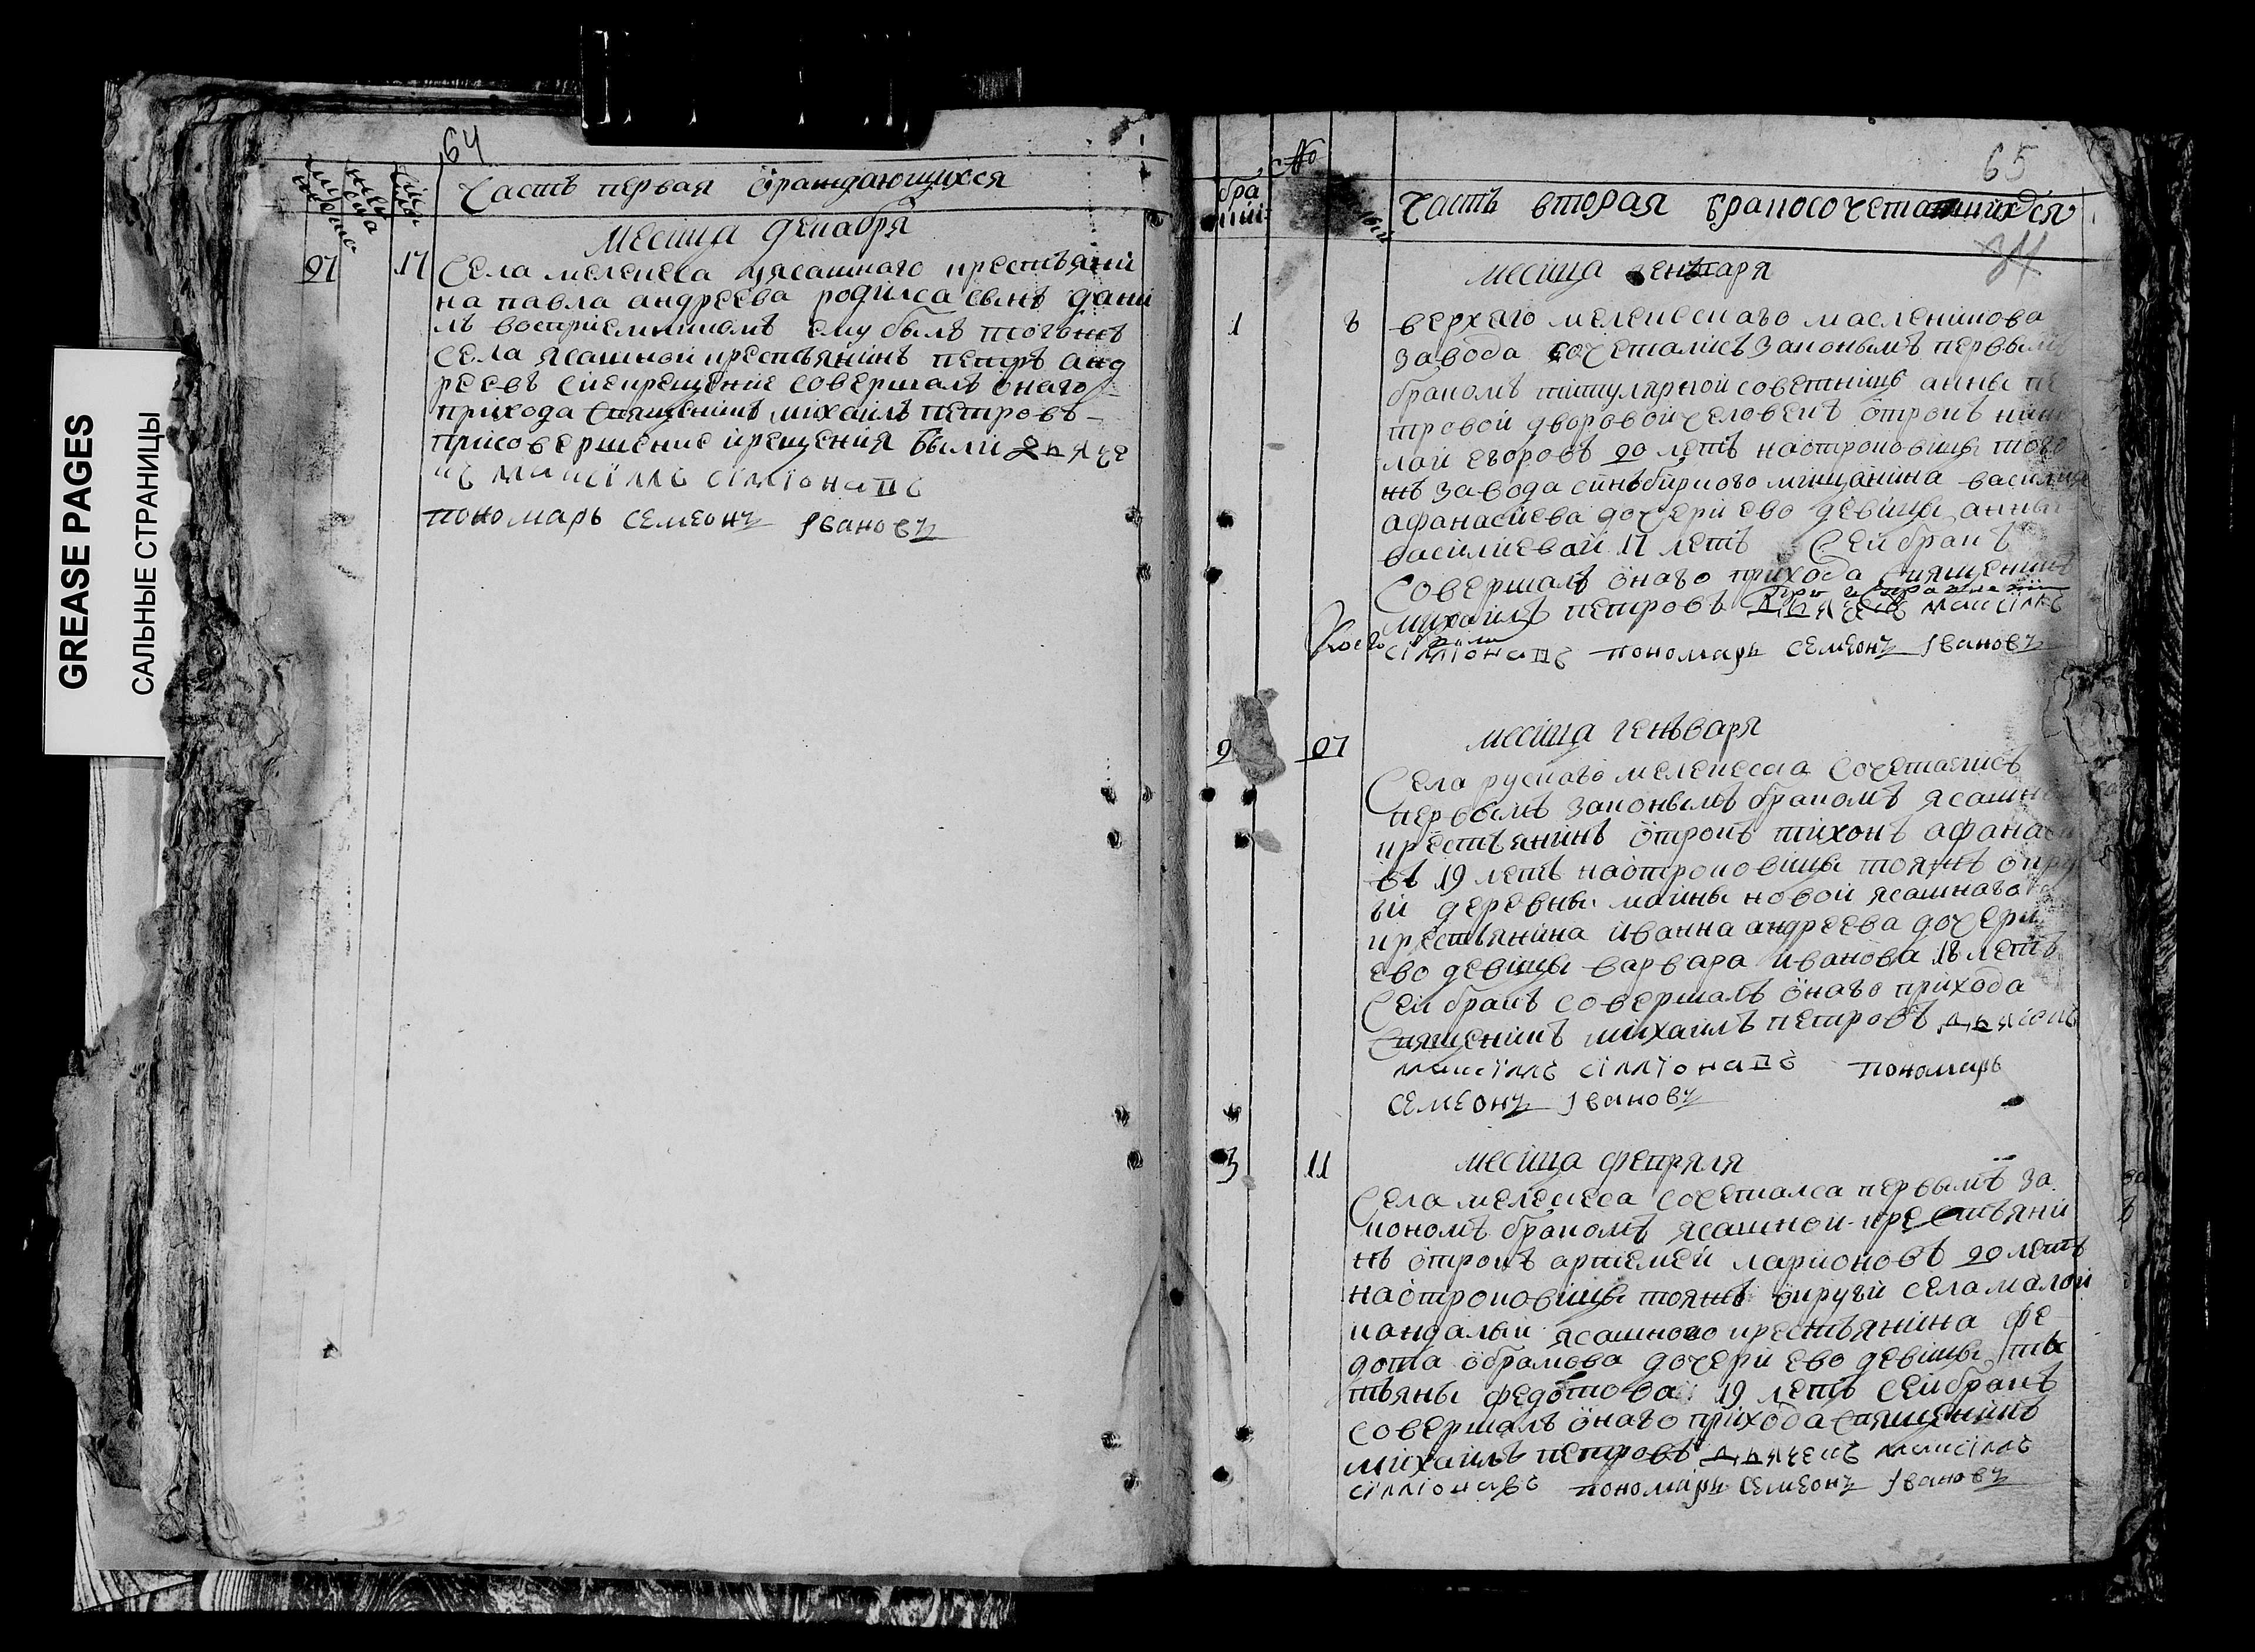 GREASE PAGES
САЛЬНЫЕ СТРАНИЦЫ
64
Часть первая ѡраждающихся
месица декабра
27 17 Села мелекеса уясашнаго крестьяни
на павла андреева родилса сынъ дани
лъ восприемникомъ ему былъ тогожъ
села ясашной крестьянинъ петръ анд
реевъ сие крещение совершалъ онаго
прихода священикъ михаилъ петровъ
присовершение крещения были дьяче
къ максімъ сімѡнавъ
пономарь семеонъ Iвановъ
65
№
бра
ки
Часть вторая бракосочета
34
месица генваря
1 8 верхаго мелекескаго масленикова
завода сочеталисъ законымъ первымъ
бракомъ титулярной советницы анны пе
тровой дворовой человекъ отрокъ нико
лай егоровъ 20 летъ наотроковицы того
жъ завода синьбирского мищанина василия
афанасиева дочери ево девицы анны
василиевай 17 летъ Сей бракъ
Совершалъ онаго прихода священикъ
михаилъ петровъ дьячекъ максімъ
сімионавъ пономарь семеонъ Iвановъ
месица генъваря
2 27
Села рускаго мелекесса Сочеталисъ
первымъ законымъ бракомъ ясашн
крестьянинъ отрокъ тихонъ афанаси
въ 19 летъ наотроковицы тояжъ окру
ги деревны маины новой ясашнаго
крестьянина иванна андреева дочери
ево девицы варвара иванова 18 летъ
Сей бракъ совершалъ онаго прихода
Священикъ михаилъ петровъ дьячокъ
максімъ сімионавъ пономарь
семеонъ Iвановъ
3 11 месица февраля
Села мелекеса сочеталса первымъ за
кономъ бракомъ ясашной крестьяни
нъ отрокъ артемей ларионовъ 20 летъ
наотроковицы тояжъ округи села малой
кандалы ясашного крестьянина фе
дота обрамова дочери ево девицы та
тьяны федотова 19 летъ сей бракъ
совершалъ онаго прихода священикъ
михаилъ петровъ дьячекъ максімъ
сімионавъ пономарь семеонъ Iвановъ